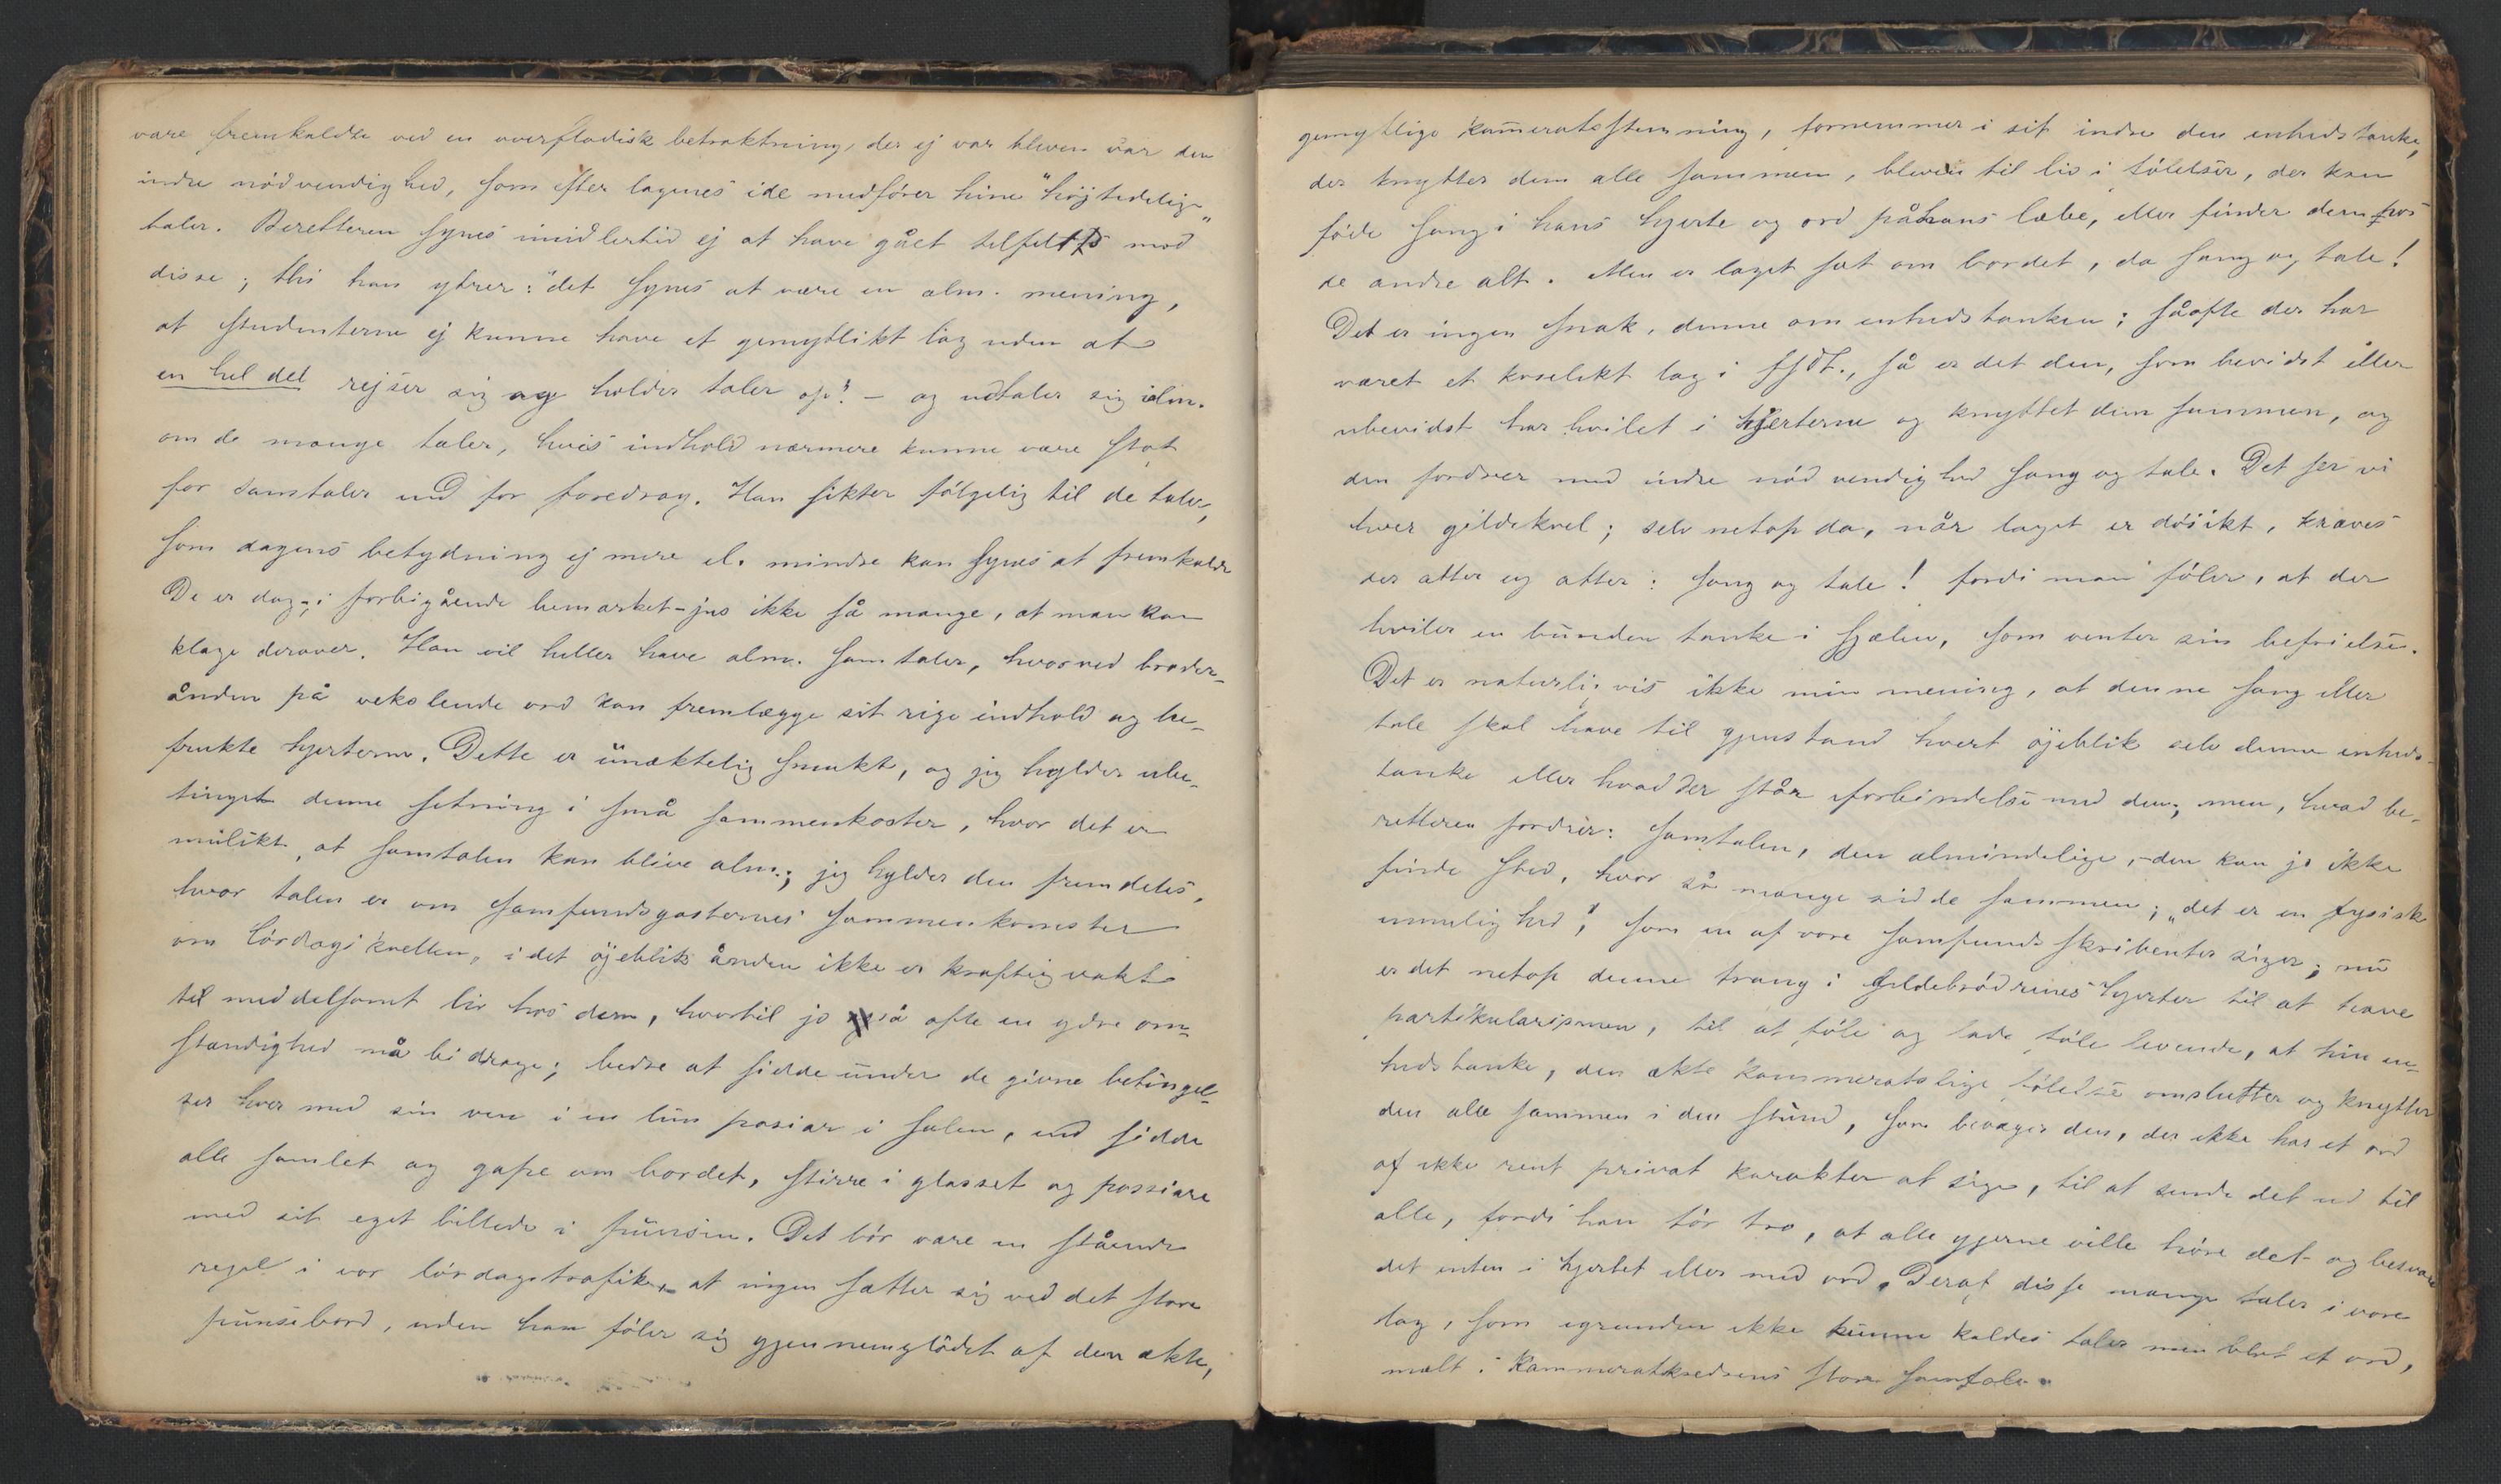 være fremkaldte ved en overfladisk betraktning, der ej var bleven var den
indre nödvendighed, som efter lagenes ide medförer hine "höjtidelige"
taler. Beretteren synes imidlertid ej at have gået tilfelts mod
disse; thi han ytrer: "det synes at være en alm. mening,
at studenterne ej kunne have et gemytlikt lag uden at
en hel del rejser sig og holder taler op". – og udtaler sig ilm.
om de mange taler, hvis indhold nærmere kunne være stof
for samtaler end for foredrag. Han sikter fölgelig til de taler,
som dagens betydning ej mere el. mindre kan synes at fremkalde
De er dog – i forbigående bemærket – jus ikke så mange, at man kan
klage derover. Han vil heller have alm. samtaler, hvorved broder-
ånden på vekslende ord kan fremlægge sit rige indhold og be-
frukte hjerterne. Dette er unæktelig smukt, og jeg hylder ube-
tinget denne setning i små sammenkoster, hvor det er
mulikt, at samtalen kan blive alm.; jeg hylder den fremdeles,
hvor talen er om samfundsgasternes sammenkomster
om lördagskvellen, i det öjeblik ånden ikke er kraftig vakt
til meddelsomt liv hos dem, hvortil jo så ofte en ydre om-
stændighed må bidrage; bedre at sidde under de givne betingel-
ser hver med sin ven i en lun pasiar i salen, end sidde
alle samlet og gape om bordet, stirre i glasset og passiare
med sit eget billede i punsen. Det bör være en stående
regel i vor lördagstrafik, at ingen sætter sig ved det store
punsebord, uden han föler sig gjennemglödet af den ækte,
gemytlige kameratsstemning, fornemmer i sit indre den enhedstanke,
der knytter dem alle sammen, bleven til liv i fölelser, der kan
föde sang i hans hjerte og ord på hans læbe, eller finder dem hos
de andre alt. Men er laget sat om bordet, da sang og tale!
Det er ingen snak, denne om enhedstanken; såofte der har
været et koselikt lag i ssdt., så er det den, som bevidst eller
ubevidst har hvilet i hjerterne og knyttet dem sammen, og
den fordrer med indre nödvendighed sang og tale. Det ser vi
hver gildekvel; selv netop da, når laget er dösikt, kræves
der atter og atter: sang og tale! fordi man föler, at der
hviler en bunden tanke i sjælen, som venter sin befrielse.
Det er naturligvis ikke min mening, at denne sang eller
tale skal have til gjenstand hvert öjeblik selv denne enheds-
tanke eller hvad der står iforbindelse med den; men, hvad be-
retteren fordrer: samtalen, den almindelige, – den kan jo ikke
finde sted, hvor så mange sidde sammen; "det er en fysisk
umulighed", som en af vore samfundsskribenter siger; nu
er det netop denne trang i gildebrödrenes hjerter til at hæve
partikularismen, til at föle og lade föle levende, at hin en-
hedstanke, den ækte kammeratslige fölelse omslutter og knytter
den alle sammen i den stund, som bevæger den, der ikke har et ord
af ikke rent privat karakter at sige, til at sende det ud til
alle, fordi han tör tro, at alle gjerne ville höre det og besvare
det enten i hjertet eller med ord. Deraf disse mange taler i vore
lag, som igrunden ikke kunne kaldes taler men blot et ord,
mælt i kammeratkredsens store samtale.